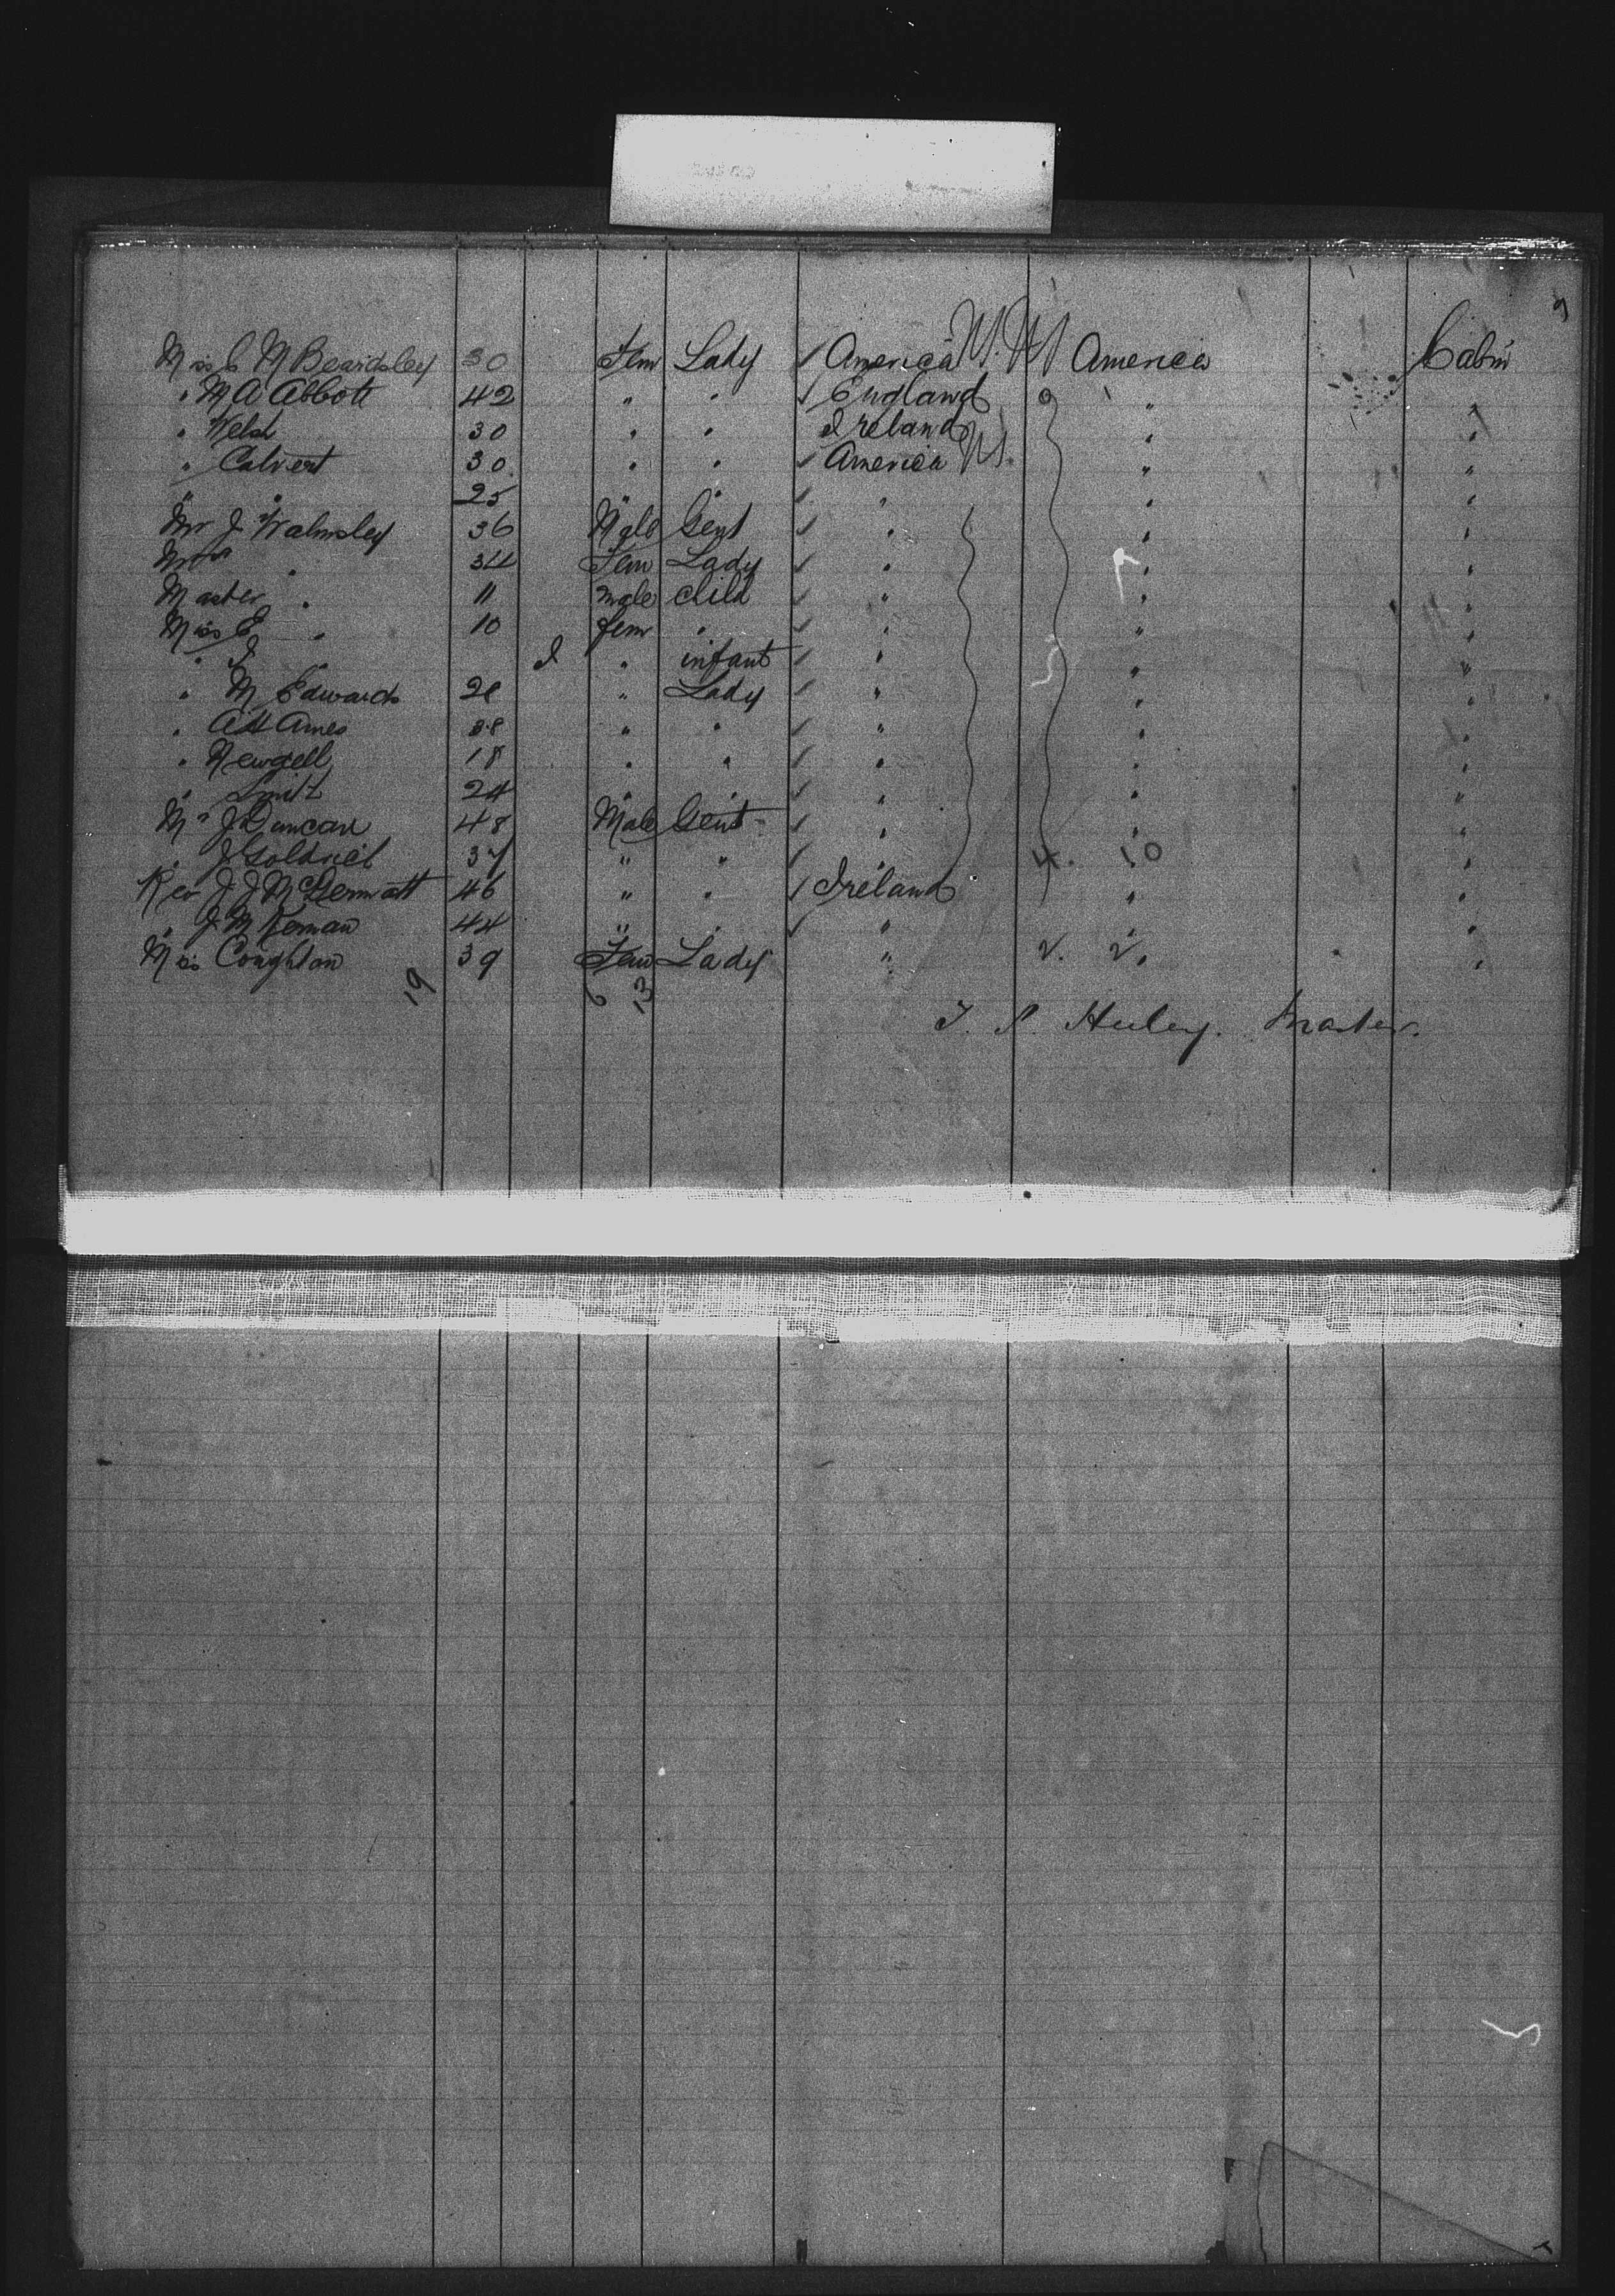 Miss C M Beardsley 30 Fem Lady America U.S. America Cabin
" M A Abbott 42 " " England " "
" Welsh 30 " " Ireland " "
" Calvert 30 " " America U.S. " "
" " 25 " " " " "
Mr J Walmsley 36 Male Gent " " "
Mrs " 34 Fem Lady " " "
Master " 11 Male child " " "
Miss E " 10 fem " " " "
" I " " infant " " "
" M Edwards 28 " Lady " " "
" A H Ames 38 " " " " "
" Newgell 18 " " " " "
" Smith 24 " " " " "
Mr J Duncan 48 Male Gent " " "
" J Goldrick 37 " " " " "
4. 10
Rev J J McDermatt 46 " " Ireland " "
" J McKernan 44 " " " " "
Miss Coughlan 39 Fem Lady " 2. 2. "
19 6 13
Master.